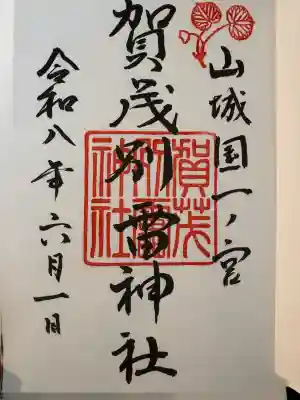 山城国一ノ宮
賀茂別雷神社
賀茂別雷神社
令和八年六月一日